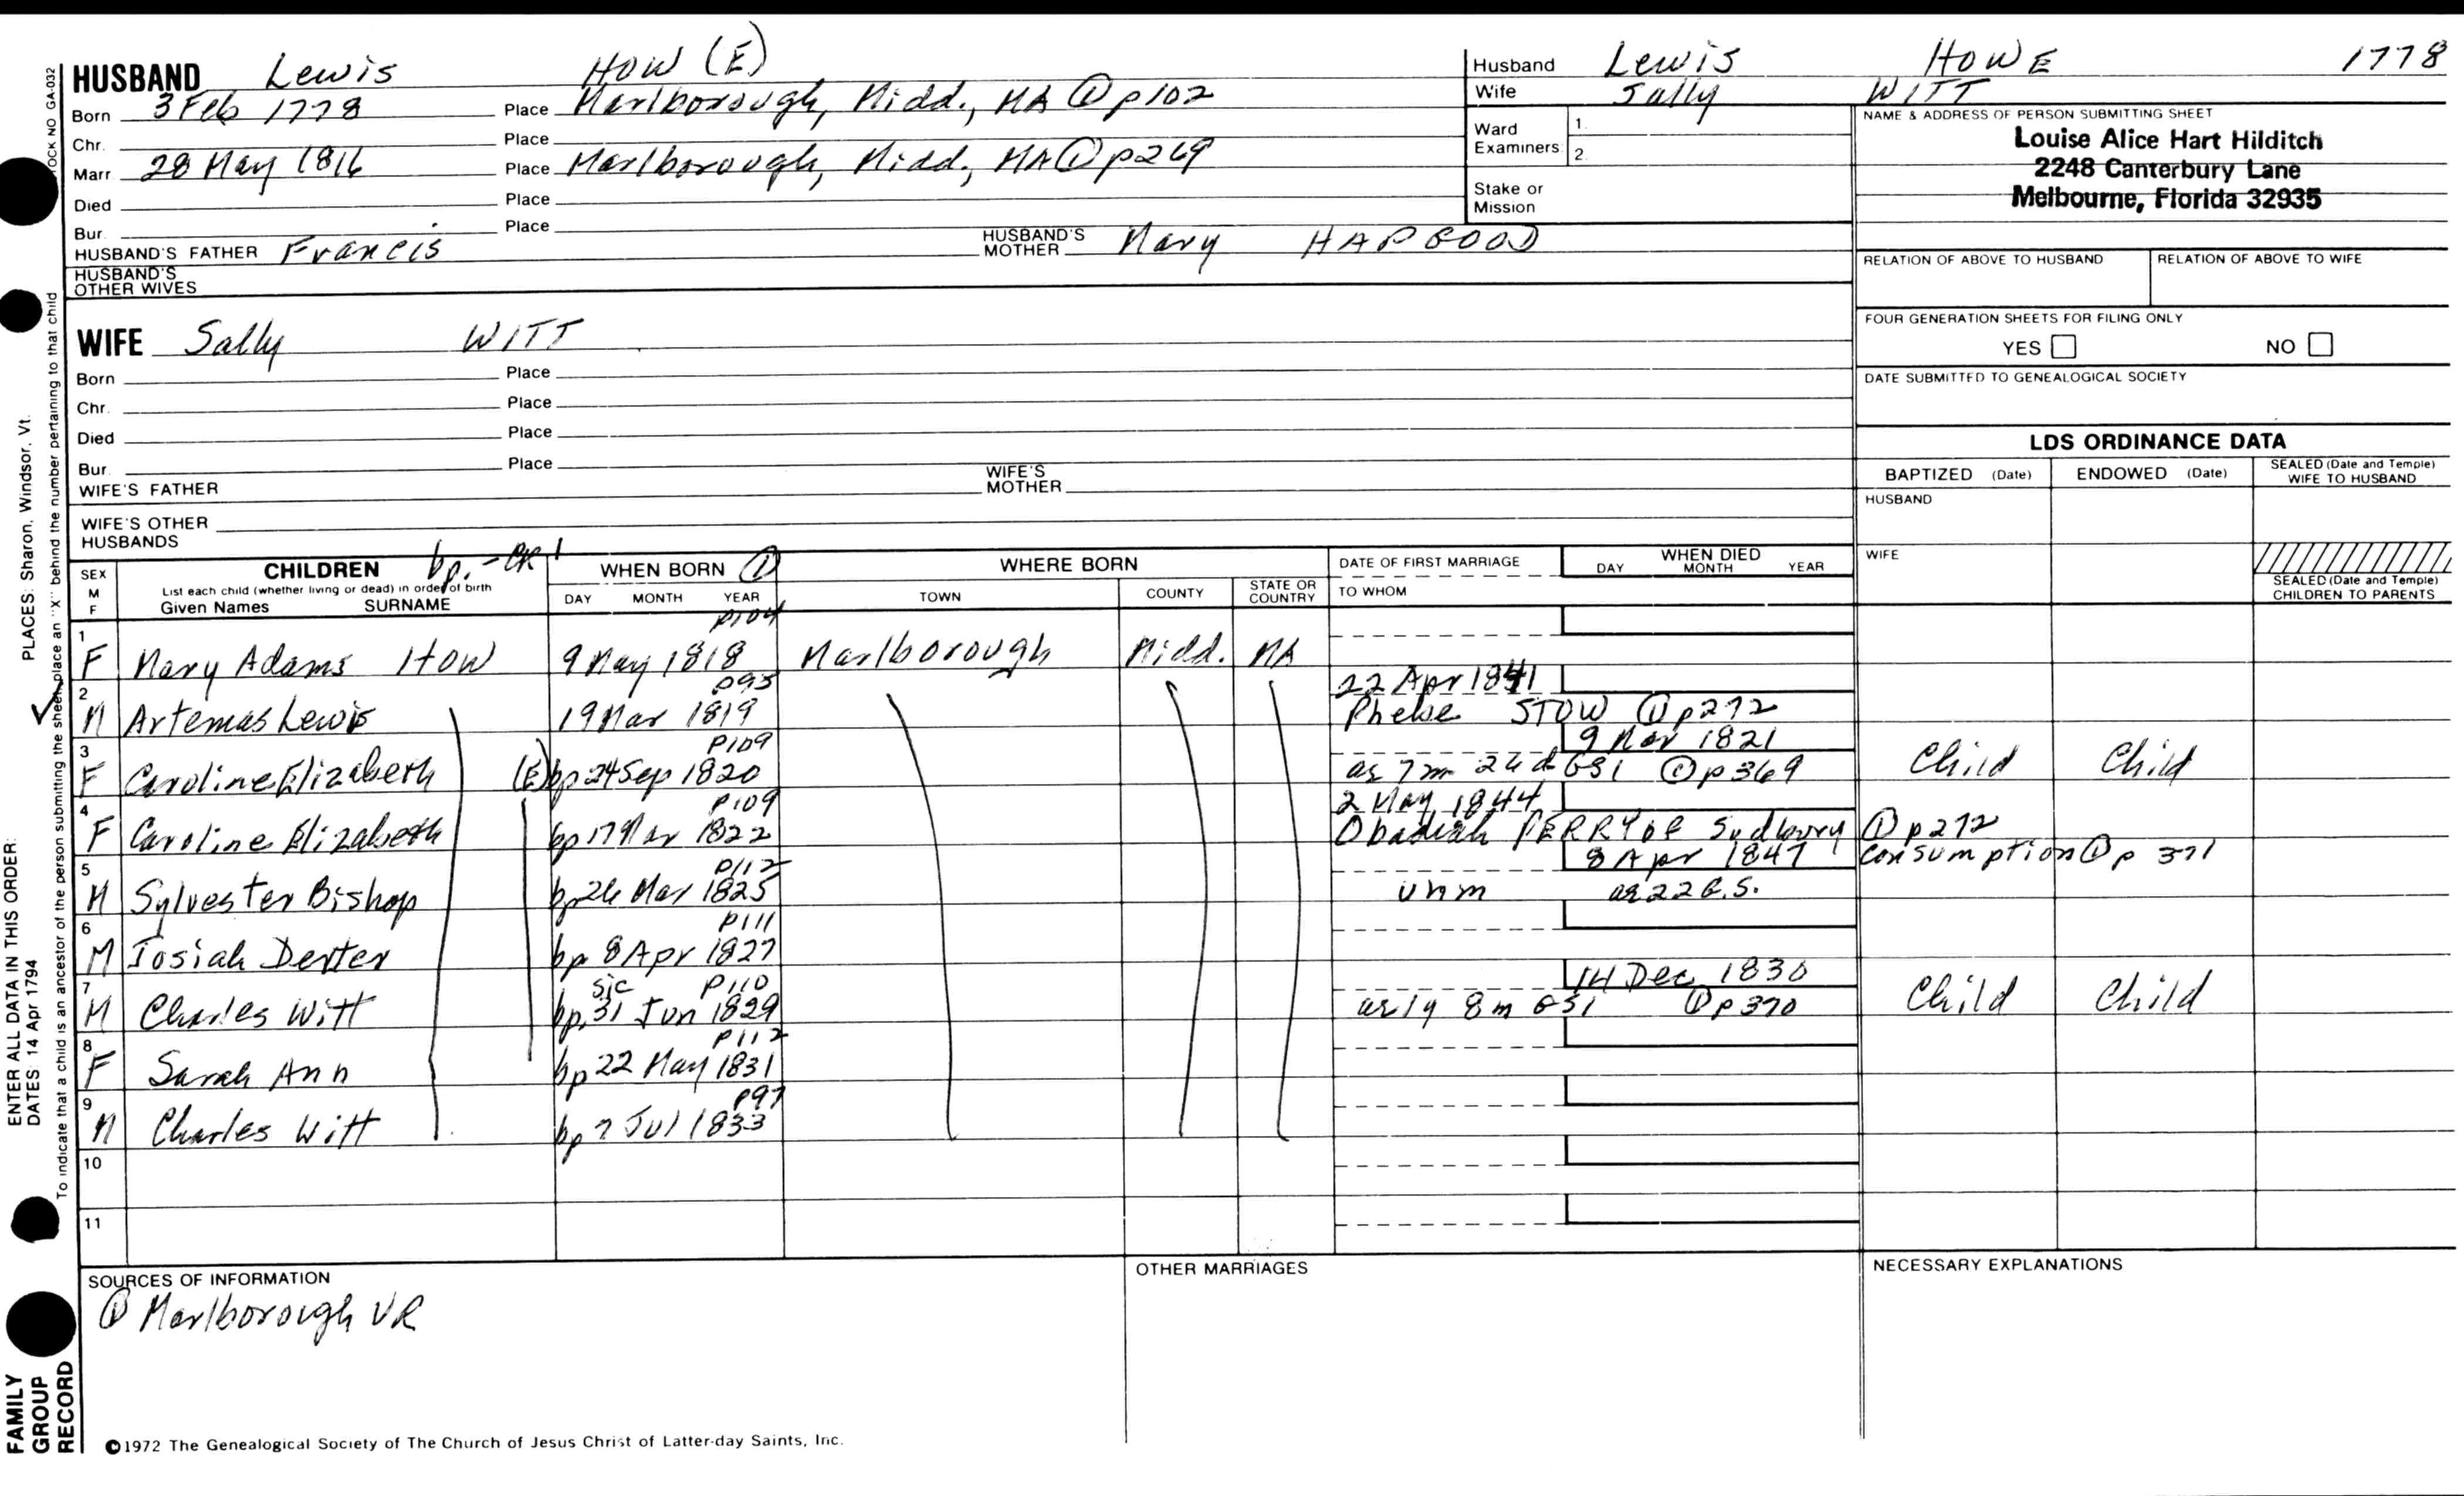 HUSBAND Lewis HOW (E)
Born 3 Feb 1778 Place Marlborough, Midd., MA ① p102
Chr. Place
Marr. 28 May 1816 Place Marlborough, Midd., MA ① p269
Died Place
Bur. Place
HUSBAND'S FATHER Francis HUSBAND'S MOTHER Mary HAPGOOD
HUSBAND'S OTHER WIVES
Husband Lewis HOWE 1778
Wife Sally WITT
Ward Examiners 1. 2.
Stake or Mission
NAME & ADDRESS OF PERSON SUBMITTING SHEET
Louise Alice Hart Hilditch
2248 Canterbury Lane
Melbourne, Florida 32935
RELATION OF ABOVE TO HUSBAND RELATION OF ABOVE TO WIFE
FOUR GENERATION SHEETS FOR FILING ONLY
YES NO
DATE SUBMITTED TO GENEALOGICAL SOCIETY
WIFE Sally WITT
Born Place
Chr. Place
Died Place
Bur. Place
WIFE'S FATHER WIFE'S MOTHER
WIFE'S OTHER HUSBANDS
LDS ORDINANCE DATA
BAPTIZED (Date) ENDOWED (Date) SEALED (Date and Temple) WIFE TO HUSBAND
HUSBAND
WIFE
SEALED (Date and Temple) CHILDREN TO PARENTS
bp. - CR 1
SEX M F CHILDREN WHEN BORN ① WHERE BORN DATE OF FIRST MARRIAGE WHEN DIED
List each child (whether living or dead) in order of birth
Given Names SURNAME DAY MONTH YEAR TOWN COUNTY STATE OR COUNTRY TO WHOM DAY MONTH YEAR
p104
1 F Mary Adams HOW 9 May 1818 Marlborough Midd. MA
p95 22 Apr 1841
2 M Artemas Lewis 19 Mar 1819 Phebe STOW ① p272
p109 9 Nov 1821
3 F Caroline Elizabeth (E) bp 24 Sep 1820 as 7m 24d GS1 ① p369 Child Child
p109 2 May 1844
4 F Caroline Elizabeth bp 17 Mar 1822 Obadiah PERRY of Sudbury ① p272
p112 8 Apr 1847 consumption ① p 371
5 M Sylvester Bishop bp 26 Mar 1825 unm ae 22 G.S.
p111
6 M Josiah Dexter bp 8 Apr 1827
sic p110 14 Dec 1830
7 M Charles Witt bp 31 Jun 1829 ae 1y 8m GS1 ① p370 Child Child
p112
8 F Sarah Ann bp 22 May 1831
p97
9 M Charles Witt bp 7 Jul 1833
10
11
SOURCES OF INFORMATION OTHER MARRIAGES NECESSARY EXPLANATIONS
① Marlborough VR
©1972 The Genealogical Society of The Church of Jesus Christ of Latter-day Saints, Inc.
OCK NO GA-032
To indicate that a child is an ancestor of the person submitting the sheet, place an "X" behind the number pertaining to that child
PLACES: Sharon, Windsor, Vt.
ENTER ALL DATA IN THIS ORDER:
DATES 14 Apr 1794
FAMILY
GROUP
RECORD